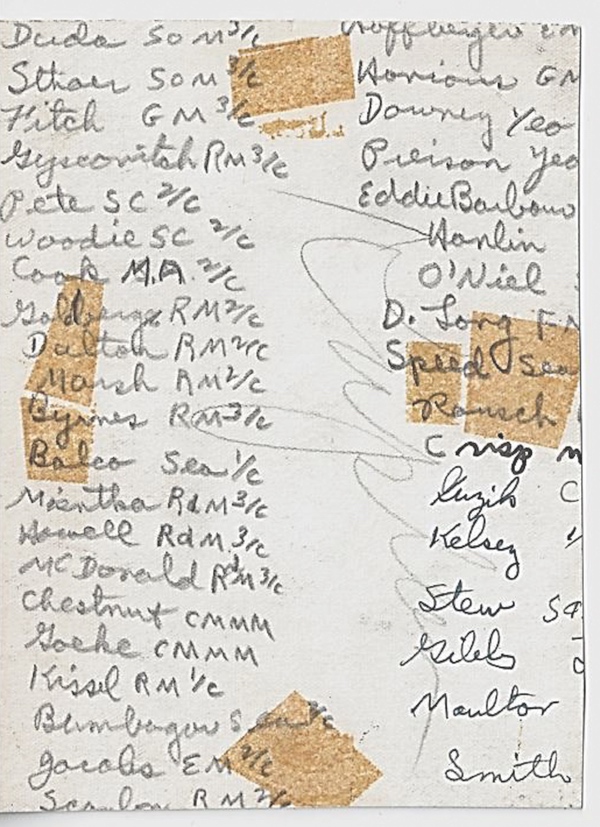 Duda SOM 3/c
Sthaer SOM 3/c
Fitch GM 3/c
Gyscovitch RM 3/c
Pete SC 2/c
Woodie SC 2/c
Cook M.A. 2/c
Goldberge RM 2/c
Dalton RM 2/c
Marsh RM 2/c
Byrnes RM 3/c
Balco Sea 1/c
Mientha RdM 3/c
Howell RdM 3/c
McDonald RdM 3/c
Chestnut CMMM
Goehe CMMM
Kissel RM 1/c
Bumbagou Sea 2/c
Jacobs EM 2/c
Scanlon RM 2/c
GM
Downey Yeo
Pierson Yeo
Eddie Barbour
Hanlin
O'Niel
D. Long
Speed Sea
Rausch
Crisp
Guzik C
Kelsey
Stew
Gibbs
Moulton
Smith